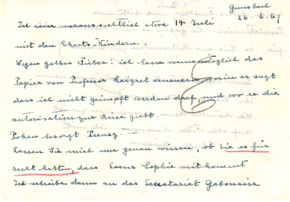 Gunsbach
26.6.61
Ich reise voraussichtlich etwa 14 Juli
mit den Eberts-Kindern.
Wegen gelber Fieber: ich lasse
Papier von Professor Margret erneuern worin er sagt
dass ich nicht geimpft werden darf, und wo er die
autorisation zur Reise gibt.
Poken besorgt
Lassen Sie mich nur genau wissen, ob Sie es für
recht halten, dass Soeur Sophie mitkommt
Ich schreibe dann an das Secretariat Gabonaise